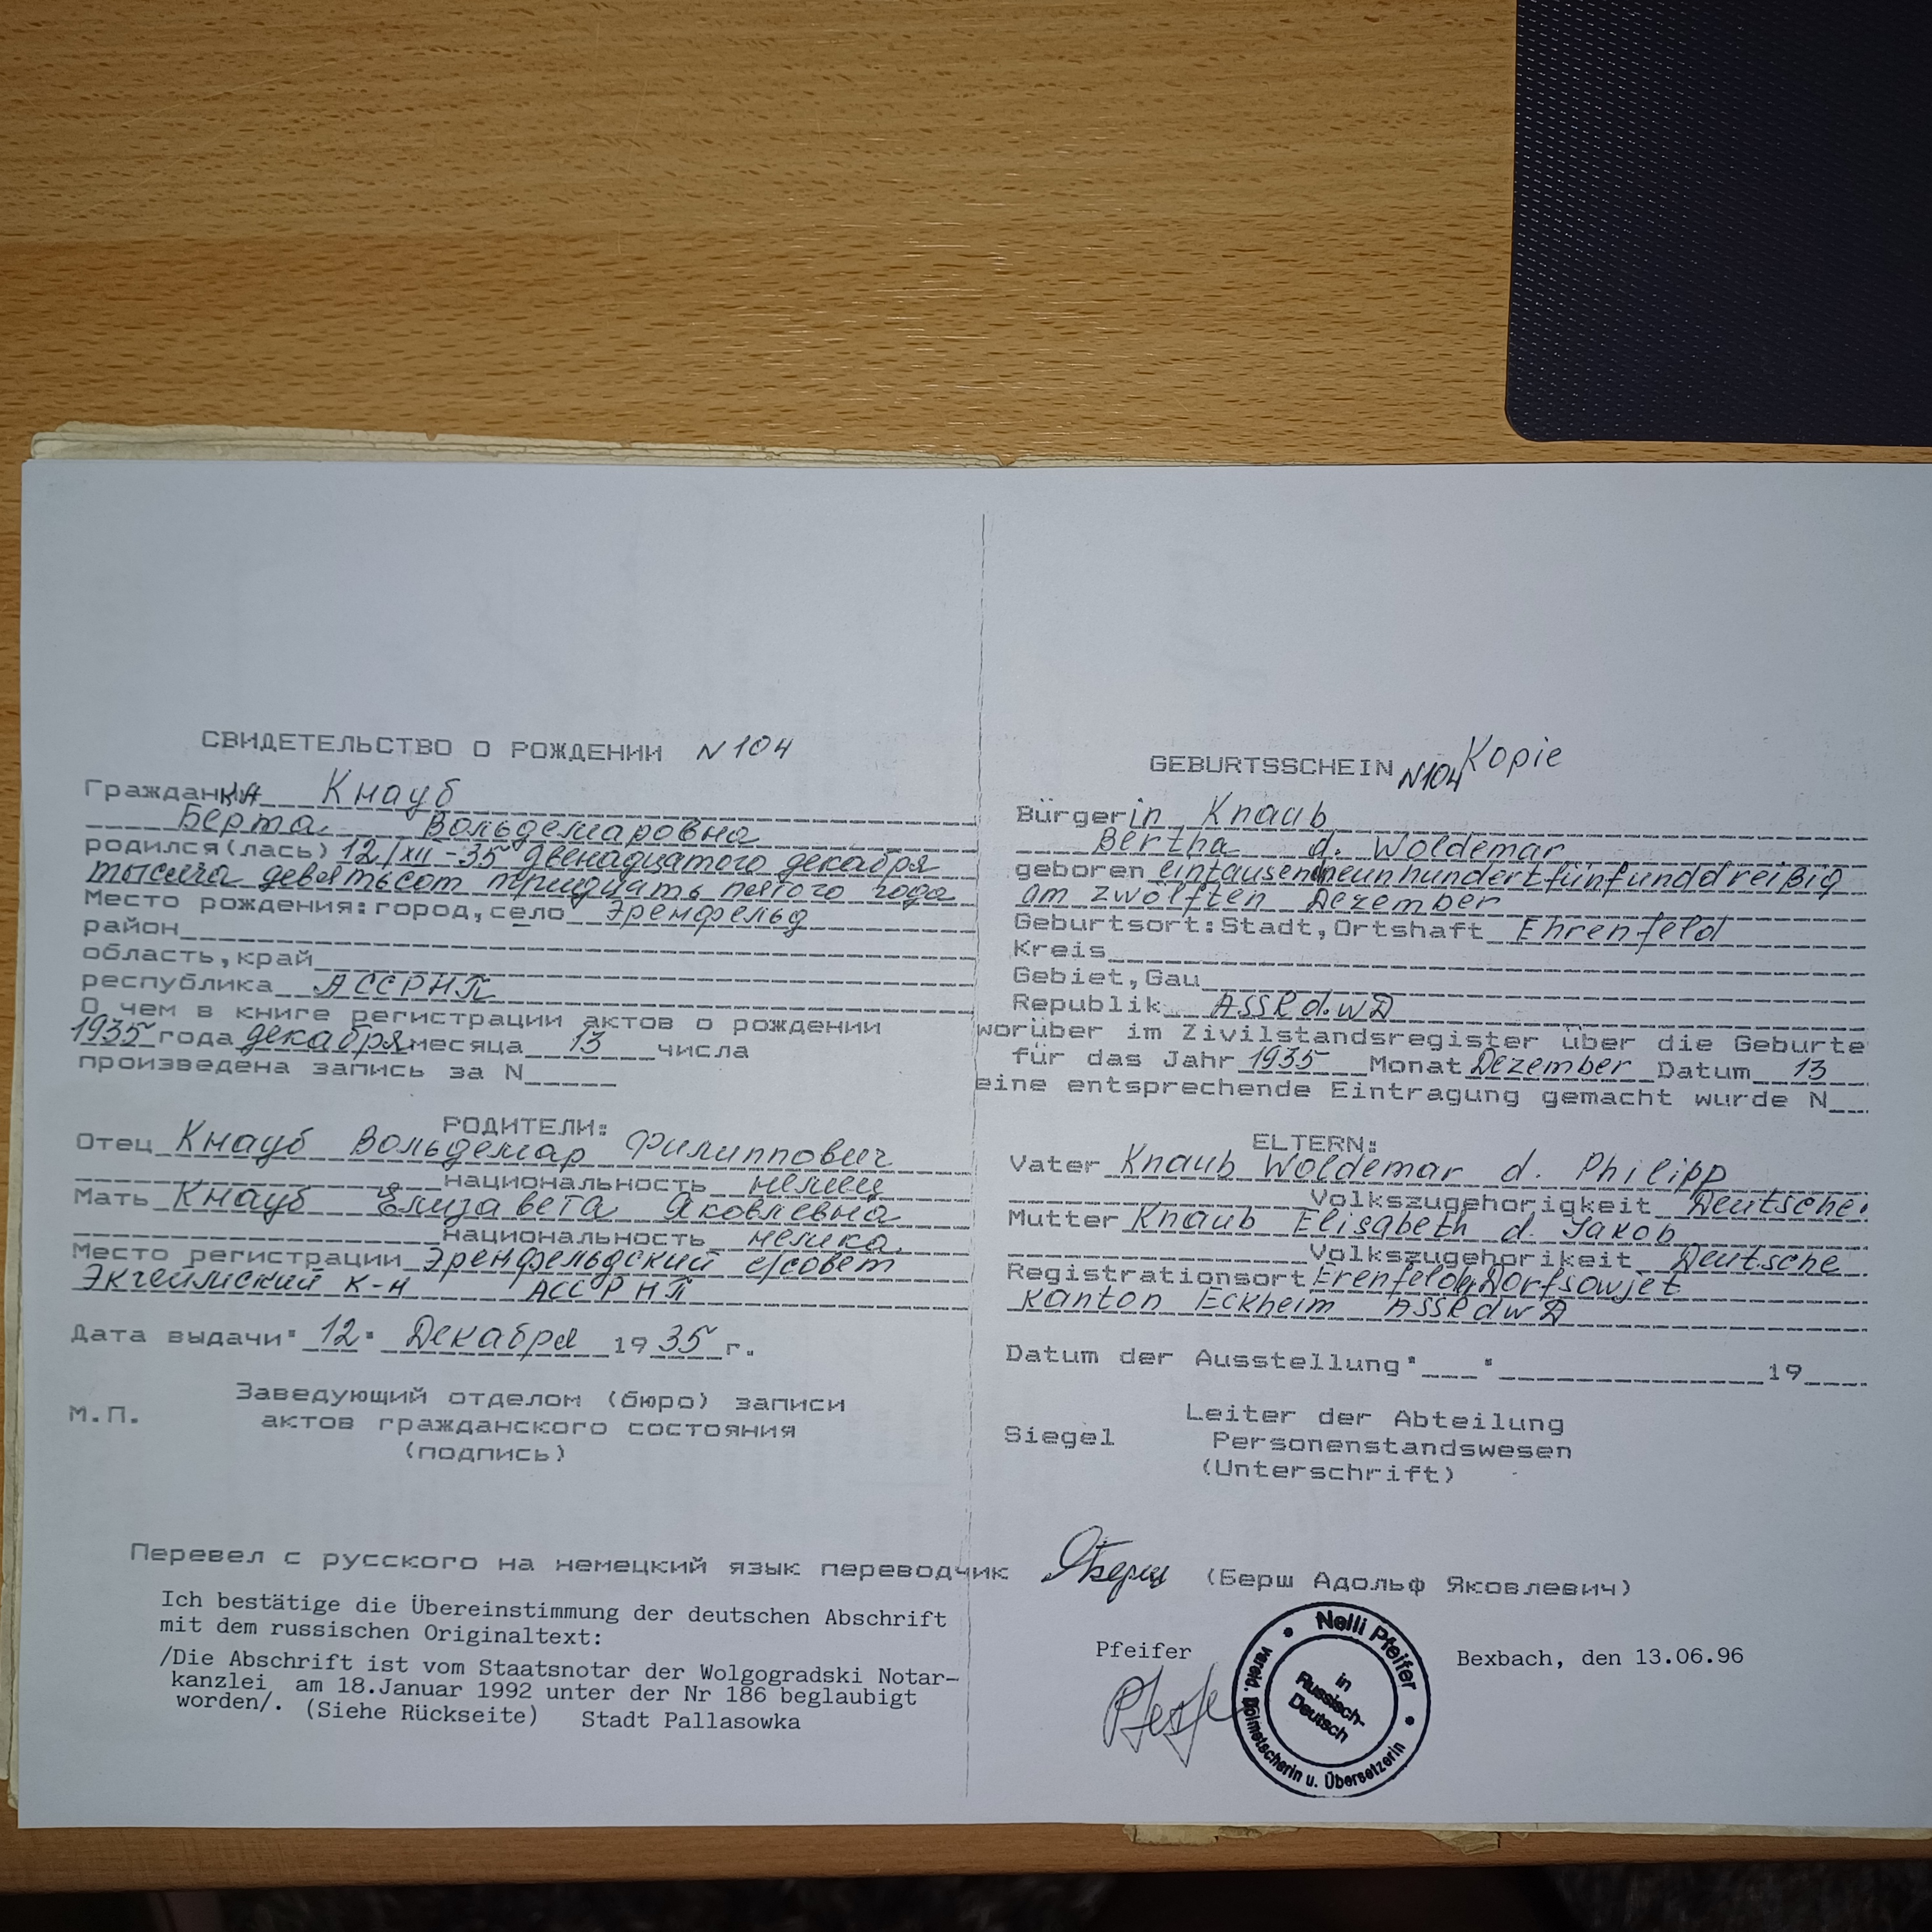 СВИДЕТЕЛЬСТВО О РОЖДЕНИИ N 104
Гражданка Кнауб
Берта Вольдемаровна
родился(лась) 12/XII-35 двенадцатого декабря
тысяча девятьсот тридцать пятого года
Место рождения: город, село Эренфельд
район
область, край
республика АССРНП
О чем в книге регистрации актов о рождении
1935 года декабря месяца 13 числа
произведена запись за N
РОДИТЕЛИ:
Отец Кнауб Вольдемар Филиппович
национальность немец
Мать Кнауб Елизавета Яковлевна
национальность немка
Место регистрации Эренфельдский с/совет
Экгеймский к-н АССРНП
Дата выдачи "12" Декабря 1935 г.
Заведующий отделом (бюро) записи
М.П. актов гражданского состояния
(подпись)
Перевел с русского на немецкий язык переводчик
Ich bestätige die Übereinstimmung der deutschen Abschrift
mit dem russischen Originaltext:
/Die Abschrift ist vom Staatsnotar der Wolgogradski Notar-
kanzlei am 18.Januar 1992 unter der Nr 186 beglaubigt
worden/. (Siehe Rückseite) Stadt Pallasowka
GEBURTSSCHEIN N104 Kopie
Bürgerin Knaub
Bertha d. Woldemar
geboren eintausendneunhundertfünfunddreißig
am zwölften Dezember
Geburtsort: Stadt, Ortshaft Ehrenfeld
Kreis
Gebiet, Gau
Republik ASSR d.WD
worüber im Zivilstandsregister über die Geburte
für das Jahr 1935 Monat Dezember Datum 13
eine entsprechende Eintragung gemacht wurde N
ELTERN:
Vater Knaub Woldemar d. Philipp
Volkszugehorigkeit Deutscher
Mutter Knaub Elisabeth d. Jakob
Volkszugehorikeit Deutsche
Registrationsort Erenfelder Dorfsowjet
Kanton Eckheim ASSR dWD
Datum der Ausstellung " " 19
Leiter der Abteilung
Siegel Personenstandswesen
(Unterschrift)
(Берш Адольф Яковлевич)
Pfeifer
Nelli Pfeifer
vereid. Dolmetscherin u. Übersetzerin
in
Russisch-
Deutsch
Bexbach, den 13.06.96